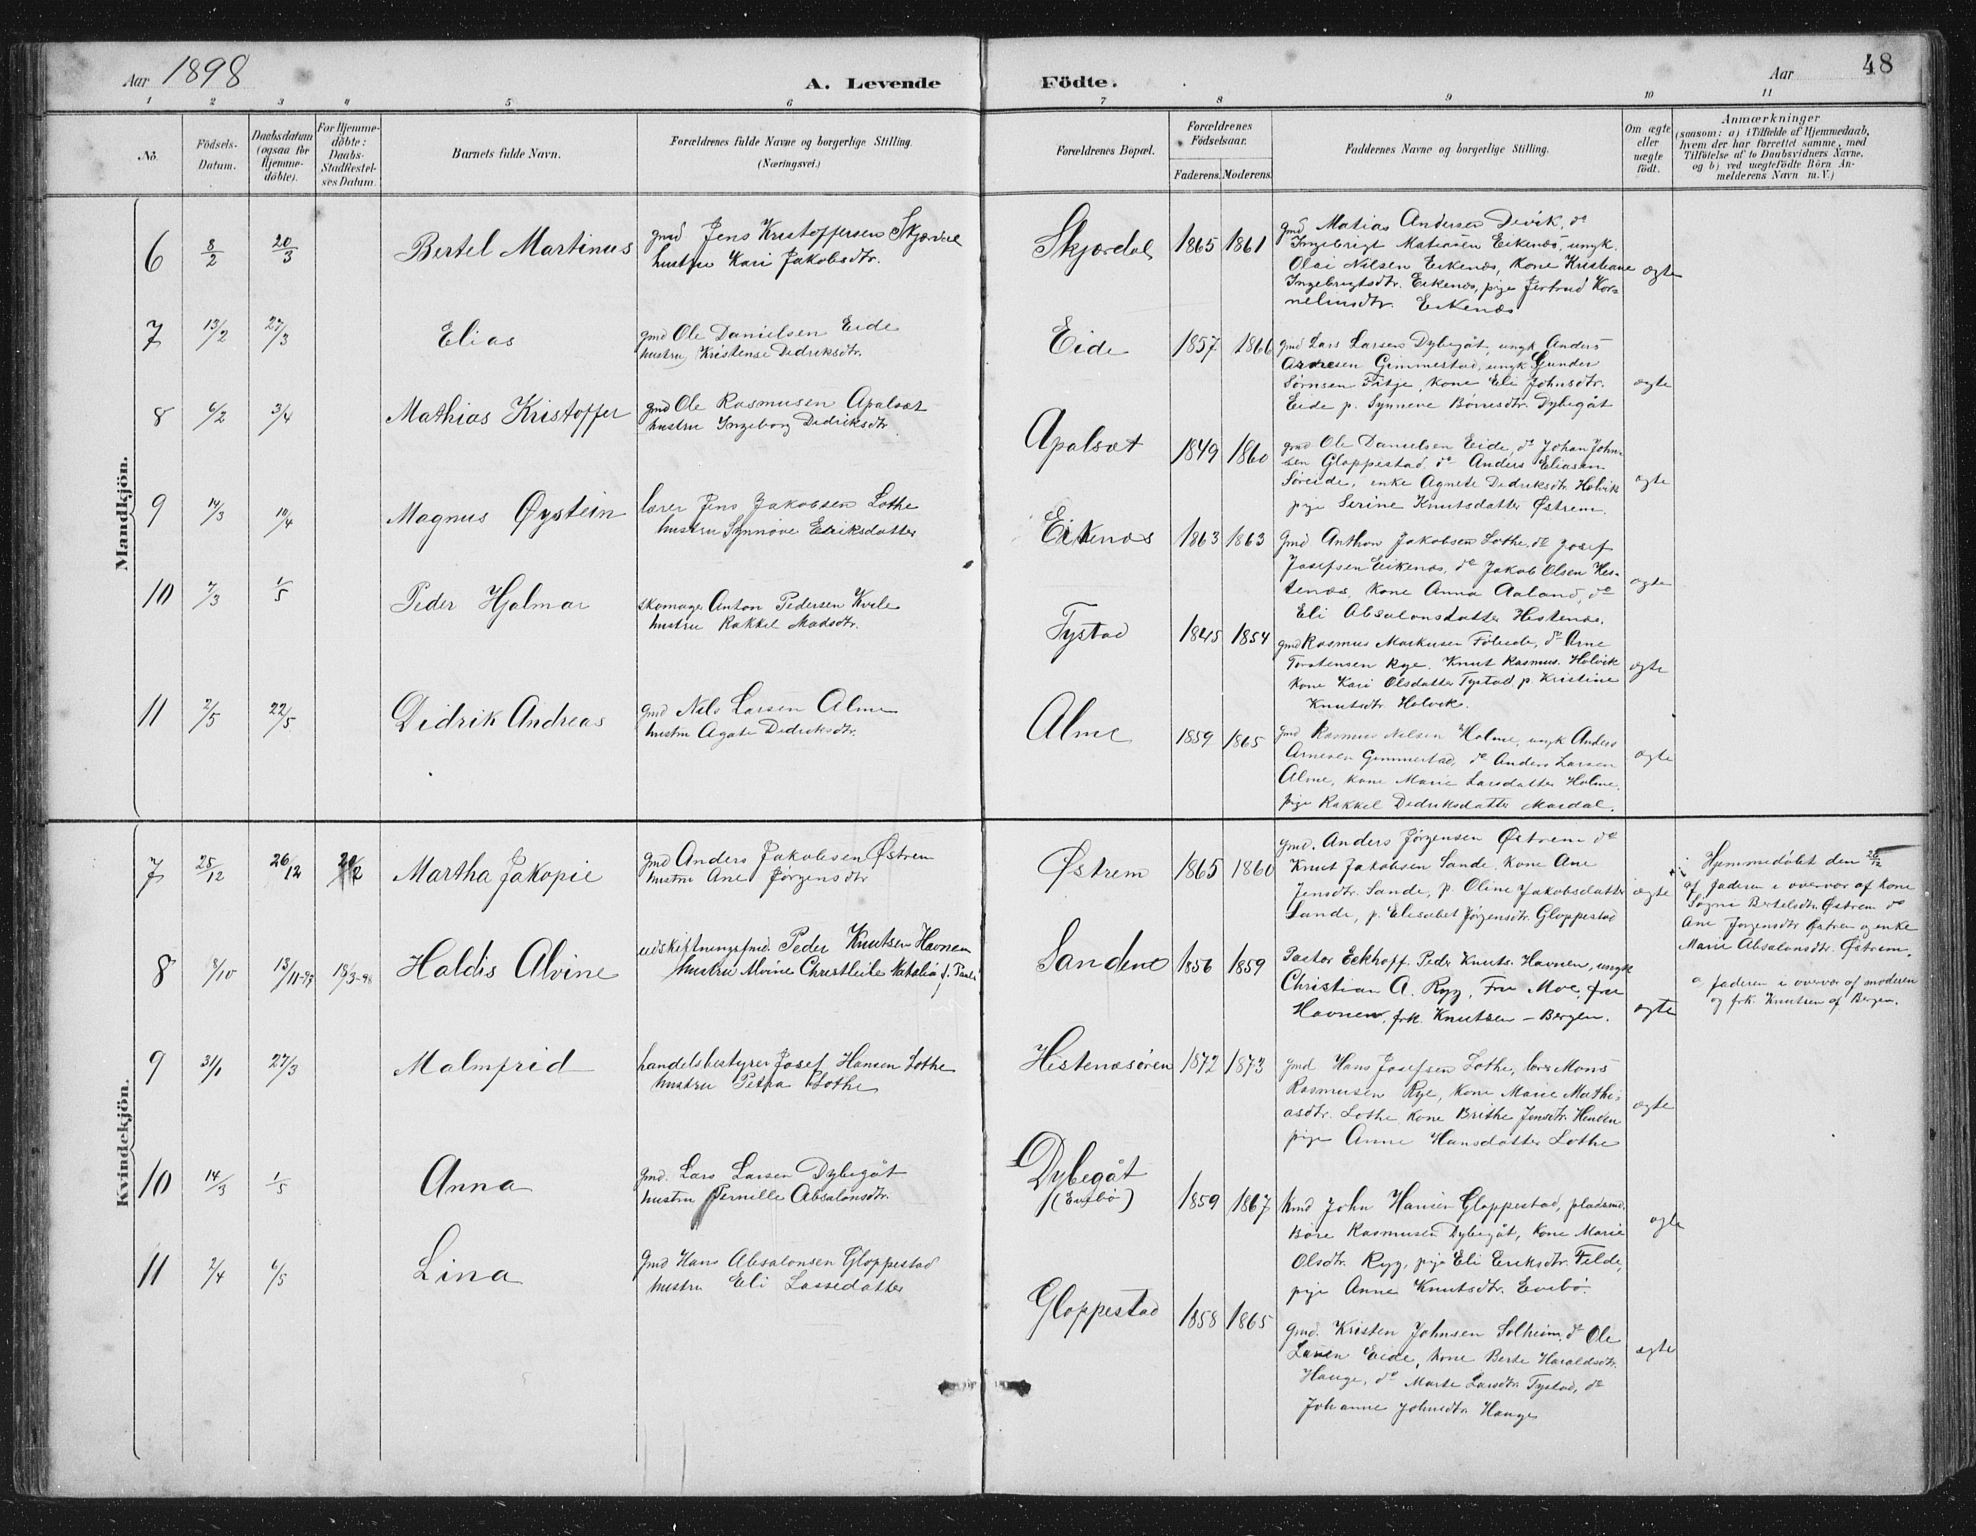 Aar 1898
A. Levende
Födte.
Aar
48
1 2 3 4 5 6 7 8 9 10 11
No.
Födsels-
Datum.
Daabsdatum
(ogsaa for
Hjemme-
döbte).
For Hjemme-
döbte:
Daabs-
Stadfæstel-
ses Datum.
Barnets fulde Navn.
Forældrenes fulde Navne og borgerlige Stilling.
(Næringsvei.)
Forældrenes Bopæl.
Forældrenes
Födselsaar.
Faderens. Moderens.
Faddernes Navne og borgerlige Stilling.
Om ægte
eller
uægte
födt.
Anmærkninger
(saasom: a) i Tilfælde af Hjemmedaab,
hvem der har forrettet samme, med
Tilföielse af to Daabsvidners Navne,
og b) ved uægtefödte Börn An-
melderens Navn m. V.)
Mandkjön.
6 8/2 20/3 Bertel Martinus
gmd Jens Kristoffersen Skjærdal
hustru Kari Jakobsdtr.
Skjærdal 1865 1861
gmd Matias Andersen Devik, do
Ingebrigt Matiasen Eikenæs, ungk.
Olai Nilsen Eikenæs, kone Kristiane
Ingebrigtsdtr. Eikenæs, pige Jertrud Kor=
neliusdtr. Eikenæs
ægte
7 13/2 27/3 Elias
gmd Ole Danielsen Eide
hustru Kristense Didriksdtr.
Eide 1857 1866
gmd Lars Larsen Dybegåt, ungk Anders
Gimmestad, ungk Gunder
Sørnsen Fitje, kone Eli Johnsdtr.
Eide p. Synneve Børresdtr. Dybegåt
ægte
8 6/2 3/4 Mathias Kristoffer
gmd Ole Rasmusen Apalsæt
hustru Ingeborg Didriksdtr
Apalsæt 1849 1860
gmd Ole Danielsen Eide, do Johan John-
sen Gloppestad, do Anders Eliasen
Søreide, enke Agnete Didriksdtr Holvik
pige Serine Knutsdatter Østrem.
ægte
9 14/3 10/4 Magnus Øystein
lærer Jens Jakobsen Lothe
hustru Synnøve Eriksdatter
Eikenæs 1863 1863
Gmd Anthon Jakobsen Lothe, do Josef
Josefsen Eikenæs, do Jakob Olsen Hes-
tenæs, kone Anna Aaland, do
Eli Absalonsdatter Hestenæs.
ægte
10 7/3 1/5 Peder Hjalmar
skomager Anton Pedersen Kvile
hustru Rakkel Madsdtr.
Tystad 1845 1854
gmd Rasmus Markusen Føleide, do Arne
Torstensen Rye. Knut Rasmus. Holvik
kone Kari Olsdatter Tystad, p. Kristine
Knutsdtr. Holvik.
ægte
11 2/5 22/5 Didrik Andreas
gmd Nils Larsen Alme
hustru Agate Didriksdtr.
Alme 1859 1865
gmd Rasmus Nilsen Holme, ungk Anders
Arnesen Gimmestad, do Anders Larsen
Alme, kone Marie Larsdatter Holme,
pige Rakkel Didriksdatter Mardal.
ægte
Kvindekjön.
7 25/12 26/12 Martha Jakopie
gmd Anders Jakobsen Østrem
hustru Ane Jørgensdtr
Østrem 1865 1860
gmd. Anders Jørgensen Østrem do
Knut Jakobsen Sande, kone Ane
Jensdtr. Sande, p. Oline Jakobsdatter
Sande, p. Elisabet Jørgensdtr. Gloppestad
ægte
Hjemmedøbt den
af faderen i overvær af kone
Søgni Bertelsdtr. Østrem do
Ane Jørgensdtr Østrem og enke
Marie Absalonsdtr. Østrem.
8 8/10 13/11-97 18/3-98 Haldis Alvine
udskiftningsfmd. Peder Knutsen Havnen
hustru Alvine Christleile Natalia f.
Sandene 1856 1859
Pastor Eckhoff Peder Knuts. Havnen, ungk
Christian A. Ryg, Fru Moe, fru
Havnen, frk. Knutsen - Bergen.
ægte
af faderen i overvær af moderen
og frk. Knutsen af Bergen.
9 31/1 27/3 Malmfrid
handelsbestyrer Josef Hansen Lothe
hustru Petra Lothe
Hestenæsören 1872 1873
gmd Hans Josefsen Lothe, lærer Mons
Rasmusen Rye, kone Marie Mathi-
asdtr. Lothe kone Brithe Jensdtr. Henden
pige Anne Hansdatter Lothe
ægte
10 14/3 1/5 Anna
gmd. Lars Larsen Dybegåt
hustru Pernille Absalonsdtr.
Dybegåt
(Evebø)
1859 1867
kmd John Hansen Gloppestad, pladsmd.
Børe Rasmusen Dybegåt, kone Marie
Olsdtr. Ryg, pige Eli Eriksdtr. Felde,
pige Anne Knutsdtr. Evebø.
ægte
11 2/4 6/5 Lina
Gmd Hans Absalonsen Gloppestad
hustru Eli Lassedatter
Gloppestad 1858 1865
gmd. Kristen Johnsen Solheim, do Ole
Larsen Eide, kone Berte Haraldsdtr.
Hauge, do Marte Larsdtr. Tystad, do
Johanne Johnsdtr. Hauge
ægte